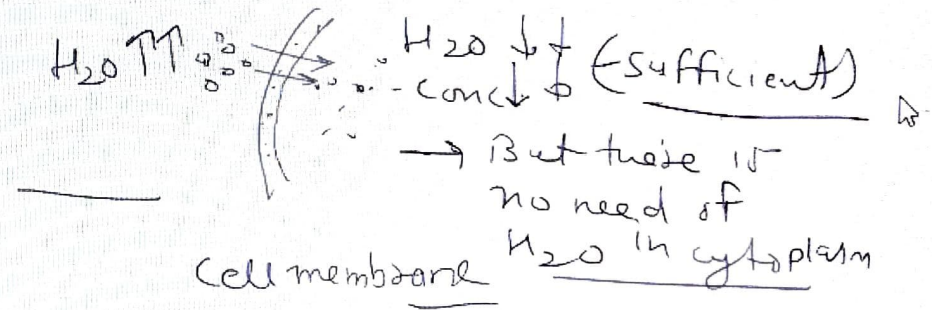 H₂O ↑↑
H₂O ↓↓
conc ↓↓ (sufficient)
→ But there is
no need of
H₂O in cytoplasm
Cell membrane